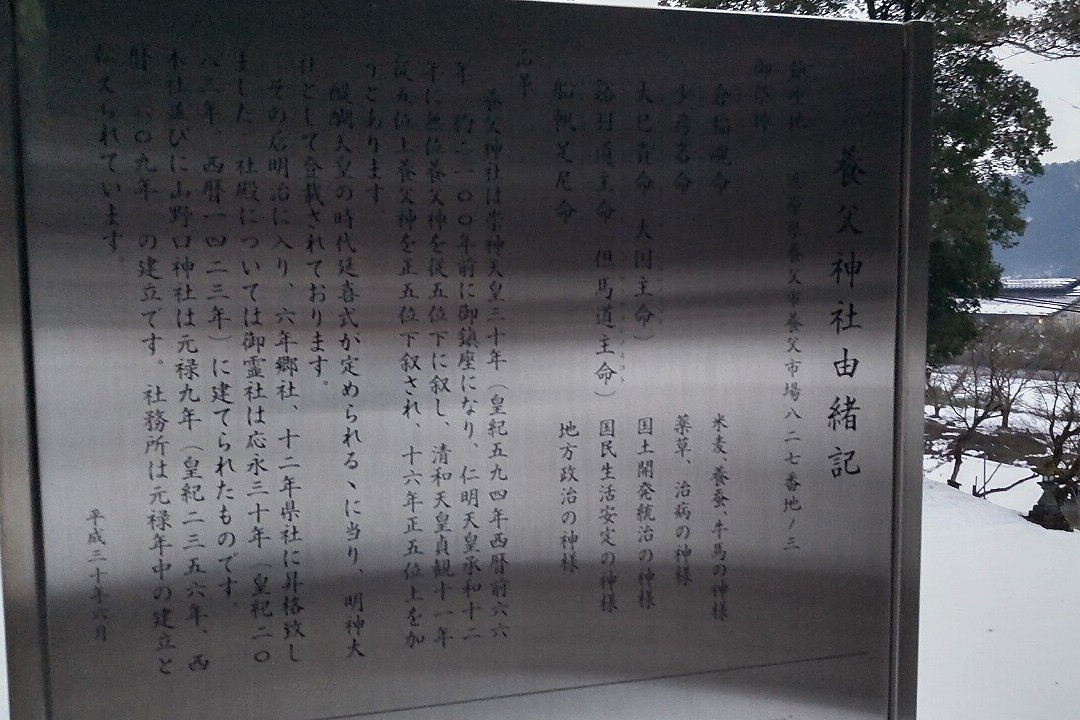 養父神社由緒記
鎮座地 兵庫県養父市養父市場八二七番地ノ三
御祭神
倉稲魂命 米麦、養蚕、牛馬の神様
少彦名命 薬草、治病の神様
大己貴命 大国主命) 国土開発統治の神様
谿羽道主命 但馬道主命) 国民生活安定の神様
船帆足尼命 地方政治の神様
沿革
養父神社は崇神天皇三十年(皇紀五九四年西暦前六六
年 約二一〇〇年前に御鎮座になり、仁明天皇承和十二
年に無位養父神を従五位下に叙し、清和天皇貞観十一年
従五位上養父神を正五位下叙され、十六年正五位上を加
うとあります。
醍醐天皇の時代延喜式が定められるゝに当り、明神大
社として登載されております。
その后明治に入り、六年郷社、十二年県社に昇格致し
ました 社殿については御霊社は応永三十年(皇紀二〇
八三年 西暦一四二三年)に建てられたものです。
本社並びに山野口神社は元禄九年(皇紀二三五六年、西
暦一六〇九年 の建立です。社務所は元禄年中の建立と
伝えられています。
平成三十年六月